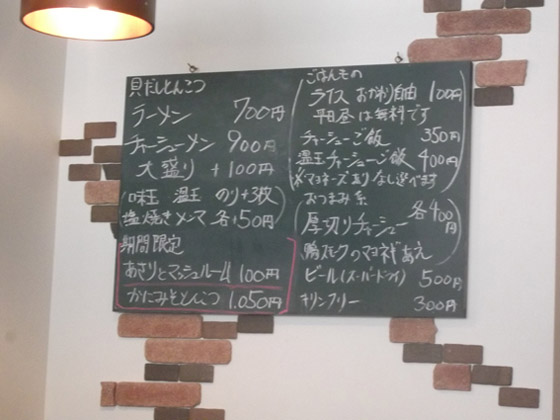 貝だしとんこつ
ラーメン 700円
チャーシューメン 900円
大盛り +100円
味玉 温玉 のり+3枚
塩焼きメンマ 各+150円
期間限定
あさりとマッシュルーム 100円
かにみそとんこつ 1.050円
ごはんもの
ライス おかわり自由 100円
平日昼は無料です
チャーシューご飯 350円
温玉チャーシューご飯 400円
※マヨネーズあり なし選べます
おつまみ系
厚切りチャーシュー 各400円
鴨スモークのマヨネギあえ
ビール(スーパードライ) 500円
キリンフリー 300円